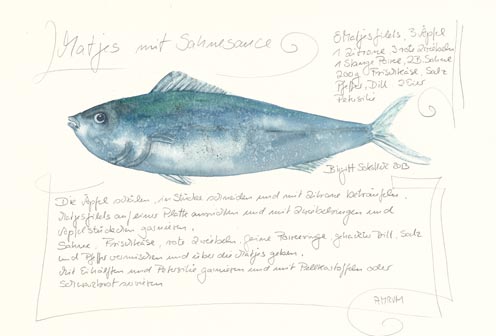 Matjes mit Sahnesauce
8 Matjesfilets, 3 Äpfel
1 Zitrone 3 rote Zwiebeln
1 Stange Poree, 2 B. Sahne
200g Frischkäse, Salz
Pfeffer, Dill. 2 Eier
Petersilie
Birgitt 2013
Die Äpfel schälen, in Stücke schneiden und mit Zitrone beträufeln.
Matjesfilets auf eine Platte anrichten und mit Zwiebelringen und
Apfelstückchen garnieren.
Sahne, Frischkäse, rote Zwiebeln, feine Poreeringe gehackten Dill, Salz
und Pfeffer vermischen und über die Matjes geben.
Mit Eihälften und Petersilie garnieren und mit Pellkartoffeln oder
Schwarzbrot servieren
AMRUM